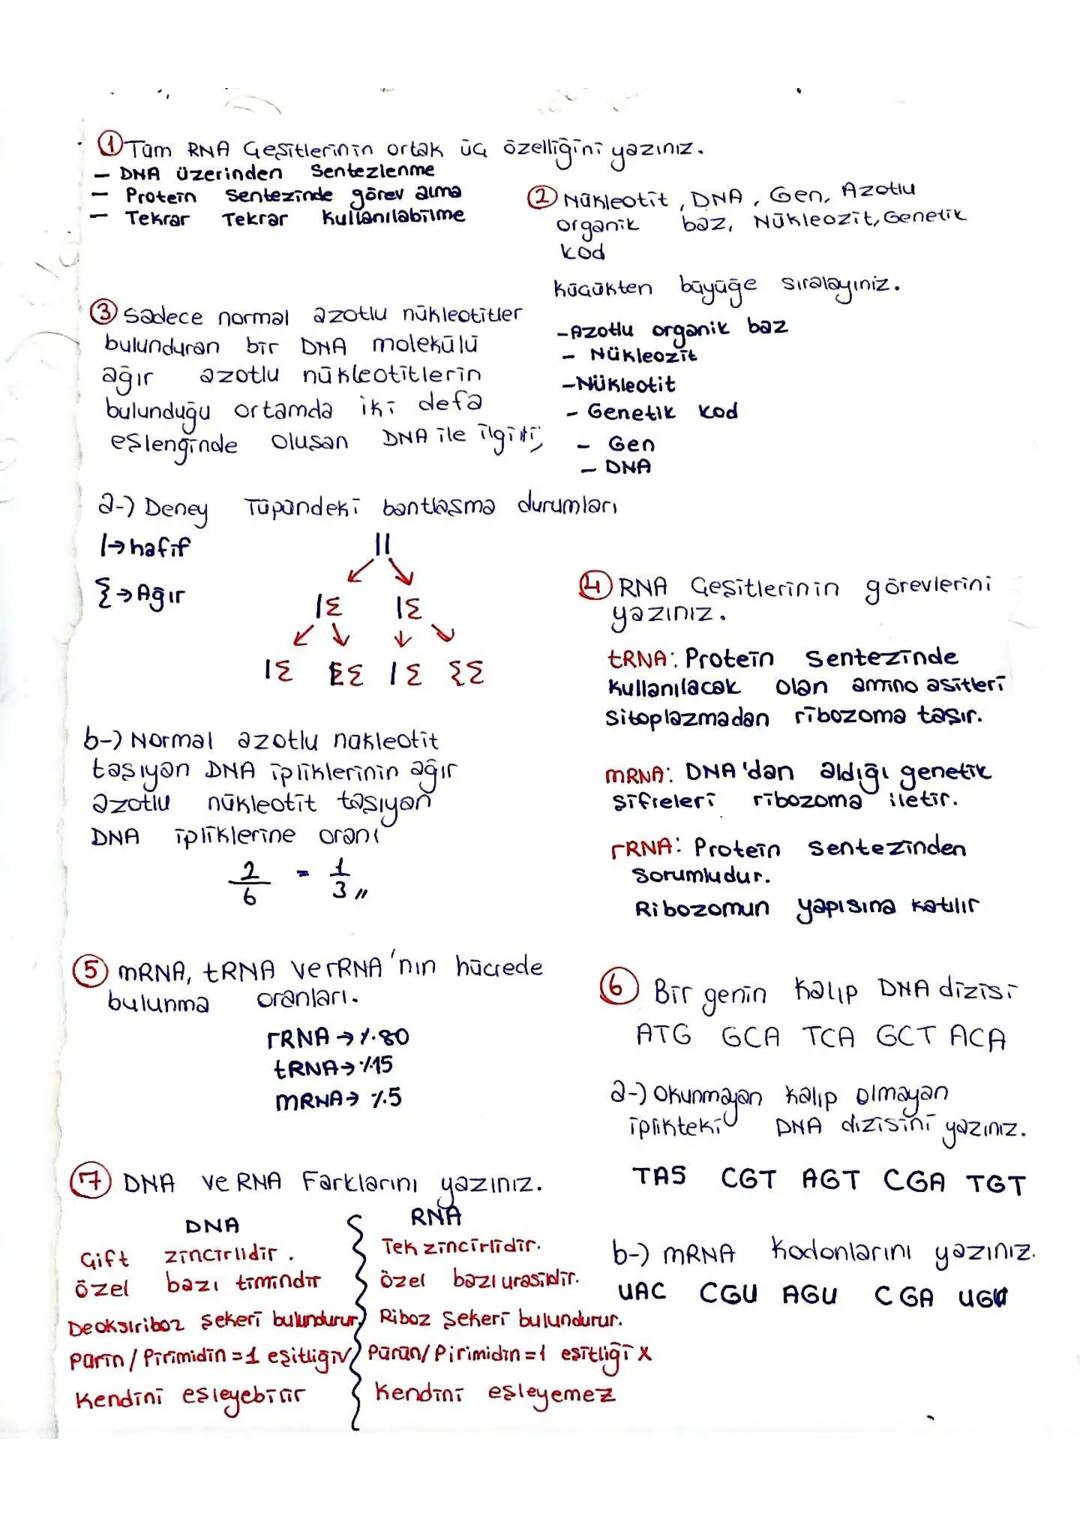 ① Tüm RNA Çeşitlerinin ortak üç özelliğini yazınız.
- DNA üzerinden Sentezlenme
- Protein sentezinde görev alma
- Tekrar Tekrar Kullanılabilme
② Nükleotit, DNA, Gen, Azotlu
organik baz, Nükleozit, Genetik
kod
küçükten büyüğe sıralayınız.
-Azotlu organik baz
- Nükleozit
-Nükleotit
- Genetik kod
- Gen
- DNA
③ Sadece normal azotlu nükleotitler
bulunduran bir DNA molekülü
ağır azotlu nükleotitlerin
bulunduğu ortamda iki defa
eşlenginde oluşan DNA ile ilgili;
a-) Deney Tüpündeki bantlaşma durumları
|→hafif
⸾→Ağır
b-) Normal azotlu nükleotit
taşıyan DNA ipliklerinin ağır
azotlu nükleotit taşıyan
DNA ipliklerine oranı
2/6 = 1/3 //
④ RNA Çeşitlerinin görevlerini
yazınız.
tRNA: Protein Sentezinde
Kullanılacak olan amino asitleri
Sitoplazmadan ribozoma taşır.
mRNA: DNA'dan aldığı genetik
Şifreleri ribozoma iletir.
rRNA: Protein sentezinden
Sorumludur.
Ribozomun yapısına katılır
⑤ mRNA, tRNA ve rRNA'nın hücrede
bulunma oranları.
rRNA → %80
tRNA → %15
mRNA → %5
⑥ Bir genin kalıp DNA dizisi
ATG GCA TCA GCT ACA
a-) Okunmayan kalıp olmayan
iplikteki DNA dizisini yazınız.
TAS CGT AGT CGA TGT
b-) mRNA kodonlarını yazınız.
UAC CGU AGU CGA UGU
⑦ DNA ve RNA Farklarını yazınız.
DNA RNA
Çift zincirlidir. Tek zincirlidir.
özel bazı timindir özel bazı urasildir.
Deoksiriboz şekeri bulundurur Riboz şekeri bulundurur.
Pürin/Pirimidin=1 eşitliği √ Pürün/Pirimidin=1 eşitliği X
Kendini eşleyebilir Kendini eşleyemez